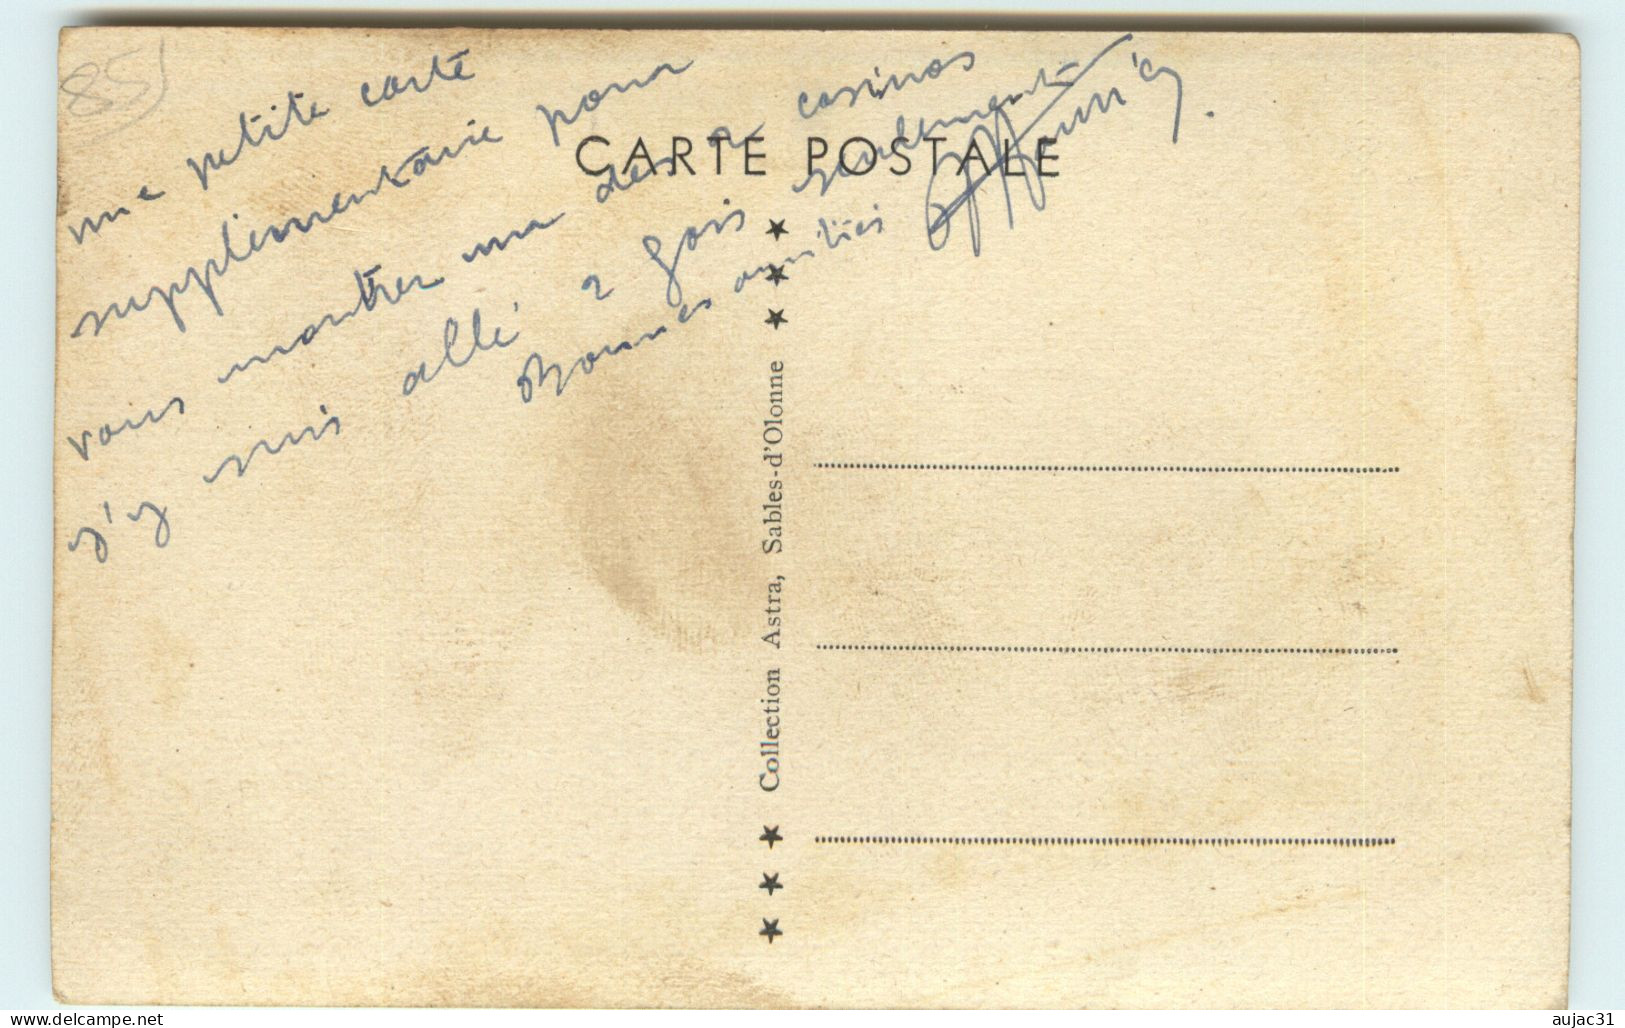 85
une petite carte
supplémentaire pour
vous montrer un des 2 casinos
j'y suis allé 2 fois seulement
Bonnes amitiés
CARTE POSTALE
Collection Astra, Sables-d'Olonne
delcampe.net
aujac31